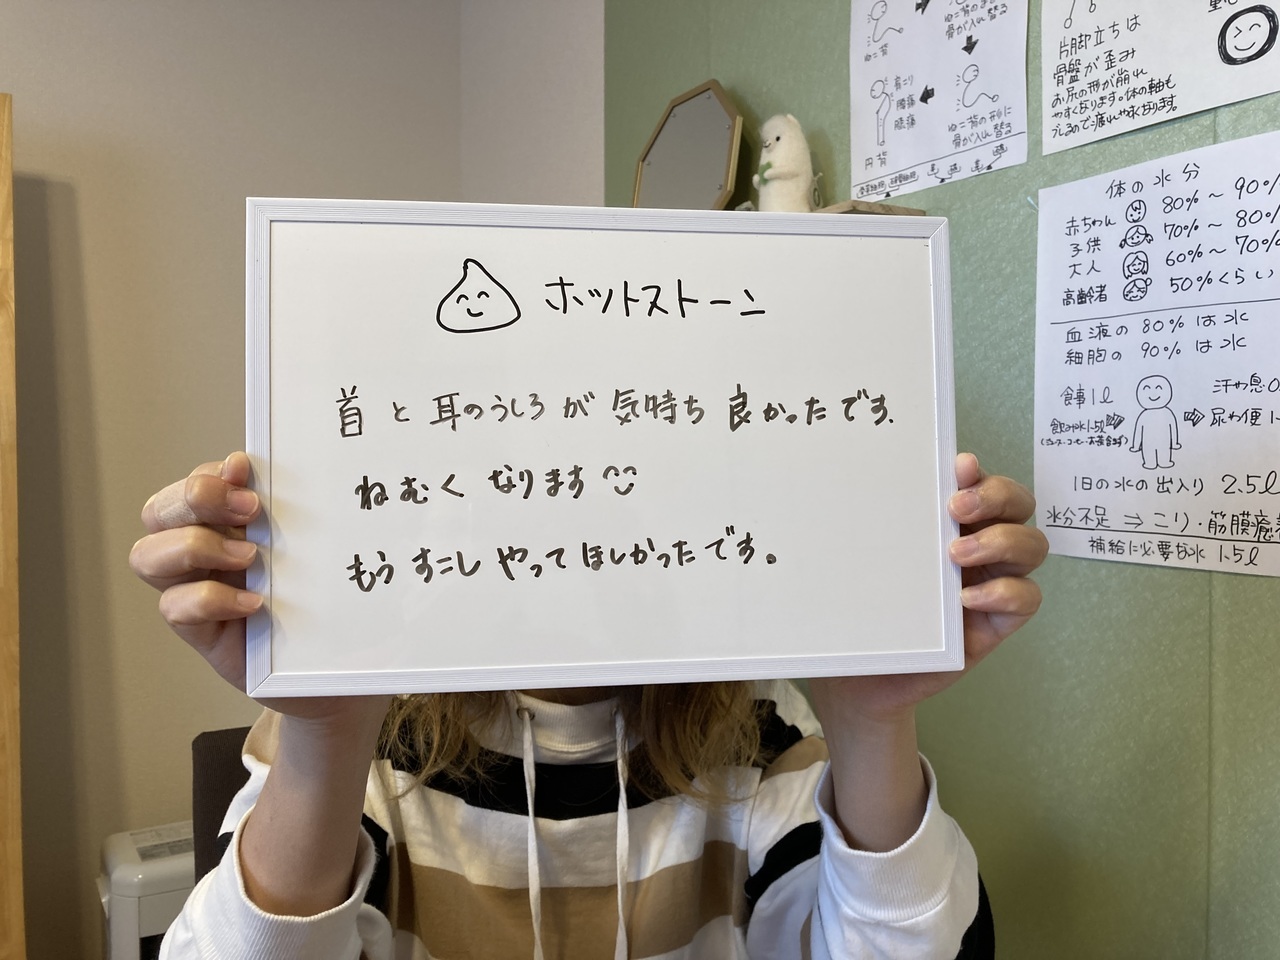 ホットストーン
首と耳のうしろが気持ち良かったです.
ねむくなります
もうすこしやってほしかったです。
ねこ背
肩こり
腰痛
膝痛
円背
ねこ背の形に
骨が入れ替る
片脚立ちは
骨盤が歪み
お尻の形が崩れ
やすくなります。体の軸も
ブレるので疲れやすくなります。
体の水分
赤ちゃん 80%~90%
子供 70%~80%
大人 60%~70%
高齢者 50%くらい
血液の80%は水
細胞の90%は水
食事1ℓ
飲み水1.5ℓ
汗や息
尿や便
1日の水の出入り 2.5ℓ
水分不足⇒こり・筋膜癒
補給に必要な水 1.5ℓ